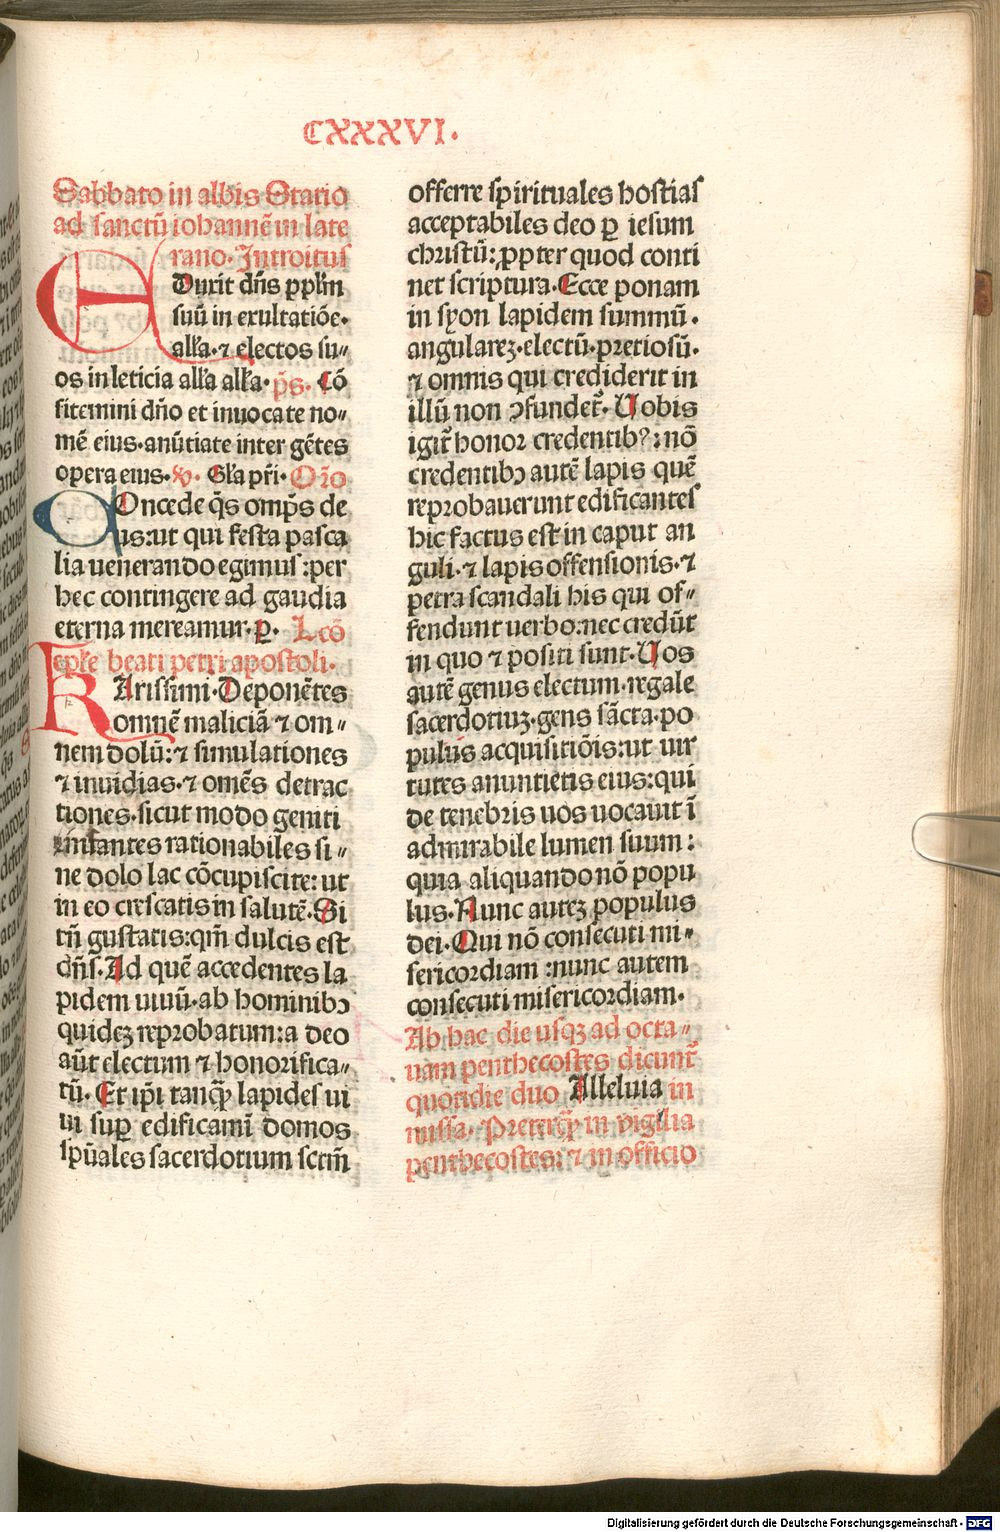 CXXXVI.
Sabbato in albis Statio
ad sanctū iohannē in late
rano. Introitus
EDuxit dñs pplm̄
suū in exultatiōe.
allꝛa. ⁊ electos su〃
os in leticia allꝛa allꝛa. p̄s. Cō
fitemini dño et inuocate no〃
mē eius. anūtiate inter gētes
opera eius. v̄. Gl̄a pr̄i. Or̄o
COncede q̄s omp̄s de
us: ut qui festa pasca
lia uenerando egimus: per
hec contingere ad gaudia
eterna mereamur. ꝑ. Lcō
epl̄e beati petri apostoli.
KArissimi. Deponētes
omnē maliciā ⁊ om〃
nem dolū: ⁊ simulationes
⁊ inuidias. ⁊ omēs detrac
tiones. sicut modo geniti
infantes rationabiles si〃
ne dolo lac cōcupiscite: ut
in eo crescatis in salutē. Si
tn̄ gustatis: qm̄ dulcis est
dn̄s. Ad quē accedentes la
pidem uiuū. ab hominibꝰ
quideꝫ reprobatum: a deo
aūt electum ⁊ honorifica〃
tū. Et ip̄i tanqꝫ lapides ui
ui suꝑ edificamī domos
sp̄uales sacerdotium scm̄
offerre spirituales hostias
acceptabiles deo ꝑ iesum
christū: ꝓpter quod conti
net scriptura. Ecce ponam
in syon lapidem summū.
angulareꝫ. electū. pretiosū.
⁊ omnis qui crediderit in
illū non ↄfundet̄. Uobis
igit̄ honor credentibꝰ: nō
credentibꝰ autē lapis quē
reprobauerunt edificantes
hic factus est in caput an
guli. ⁊ lapis offensionis. ⁊
petra scandali his qui of〃
fendunt uerbo: nec credūt
in quo ⁊ positi sunt. Uos
autē genus electum. regale
sacerdotiuꝫ. gens sācta. po
pulus acquisitiōis: ut uir
tutes anuntietis eius: qui
de tenebris uos uocauit ī
admirabile lumen suum:
quia aliquando nō popu
lus. Nunc auteꝫ populus
dei. Qui nō consecuti mi〃
sericordiam: nunc autem
consecuti misericordiam.
Ab hac die usqꝫ ad octa〃
uam penthecostes dicunt̄
quotidie duo Alleluia in
missa. Preterqꝫ in vigilia
penthecostes: ⁊ in officio
Digitalisierung gefördert durch die Deutsche Forschungsgemeinschaft - DFG